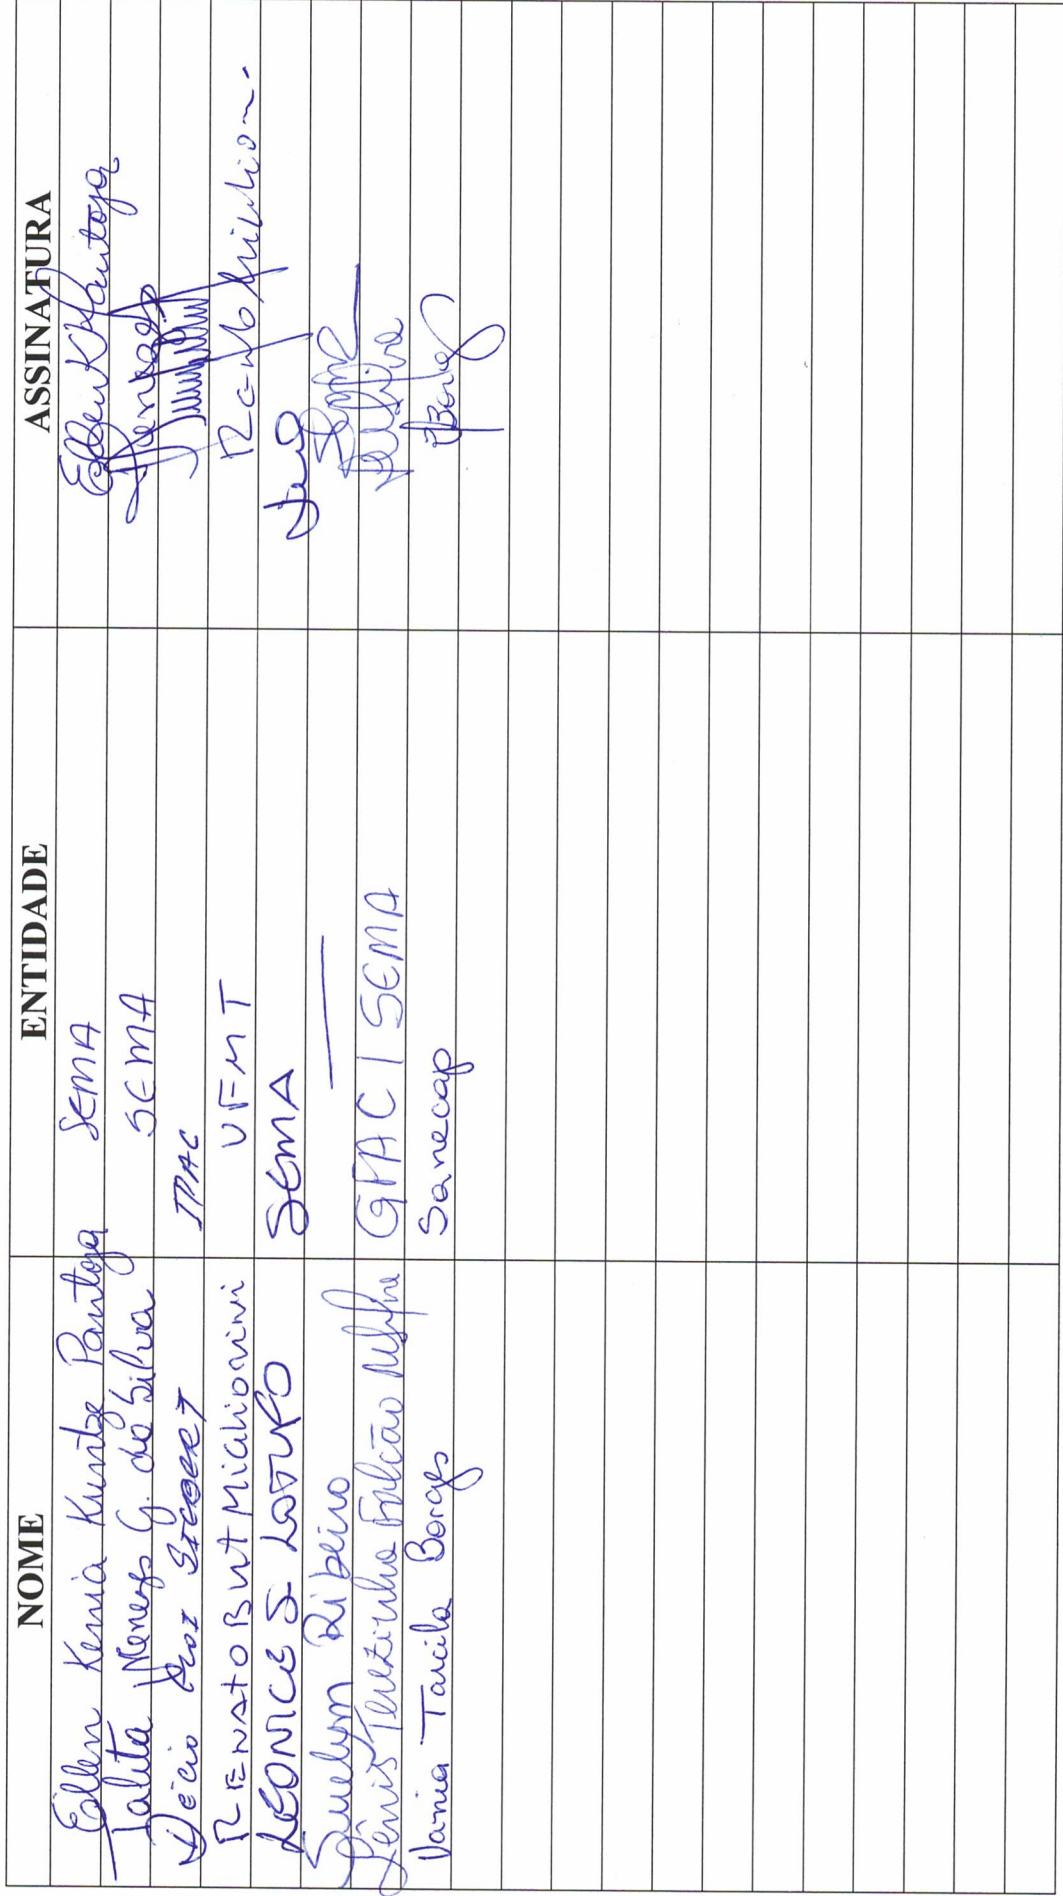 NOME ENTIDADE ASSINATURA
Ellen Kenia Kuntze Pantoja SEMA Ellen K Pantoja
Talita Menezes G. da Silva SEMA
Décio SIEBERT IPAC
RENATO BLAT MIGLIORINI UFMT Renato Migliorini
LEONICE S LOTUFO SEMA
Suelym Ribeiro —
Lênis Terezinha Falcão GPAC / SEMA
Vania Tarcila Borges Sanecap VBorges